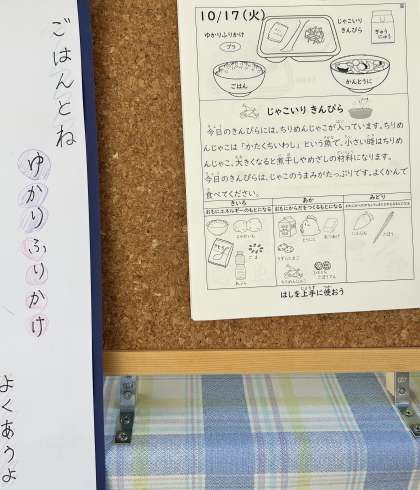 ごはんとね
ゆかりふりかけ
よくあうよ
10/17(火)
ゆかりふりかけ
プラ
じゃこいり
きんぴら
ぎゅう
にゅう
ごはん
かんとうに
じゃこいり きんぴら
今日のきんぴらには、ちりめんじゃこが入っています。ちりめ
んじゃこは「かたくちいわし」という魚で、小さい時はちりめ
んじゃこ、大きくなると煮干しやめざしの材料になります。
今日のきんぴらは、じゃこのうまみがたっぷりです。よくかんで
食べてください。
きいろ
あか
みどり
おもにエネルギーのもとになる
おもにからだをつくるもとになる
はしを上手に使おう